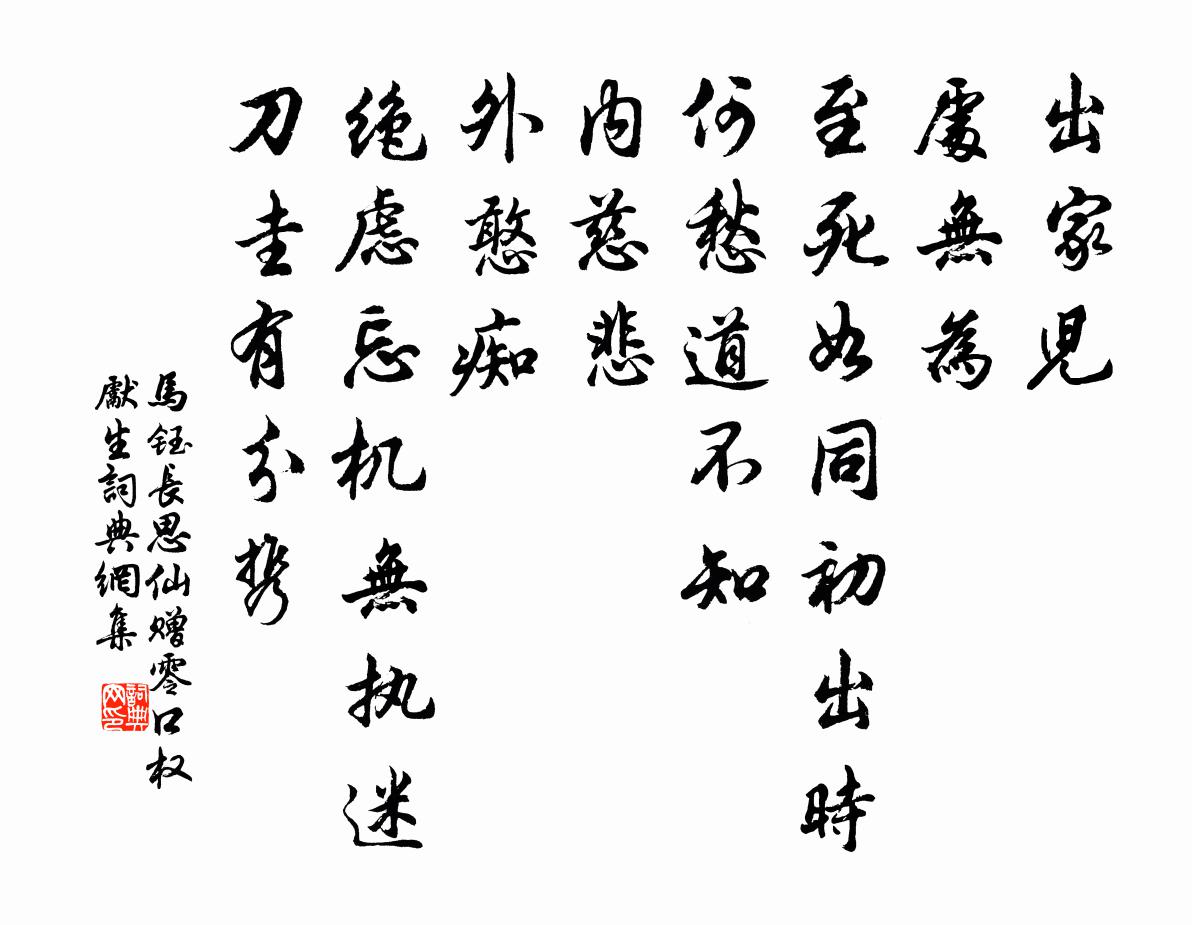 出家児
處無為
至死如同初出時
何愁道不知
内慈悲
外憨痴
绝慮忘机無执迷
刀圭有分携
馬鈺長思仙赠零口权
獻生詞典網集
詞典
网印